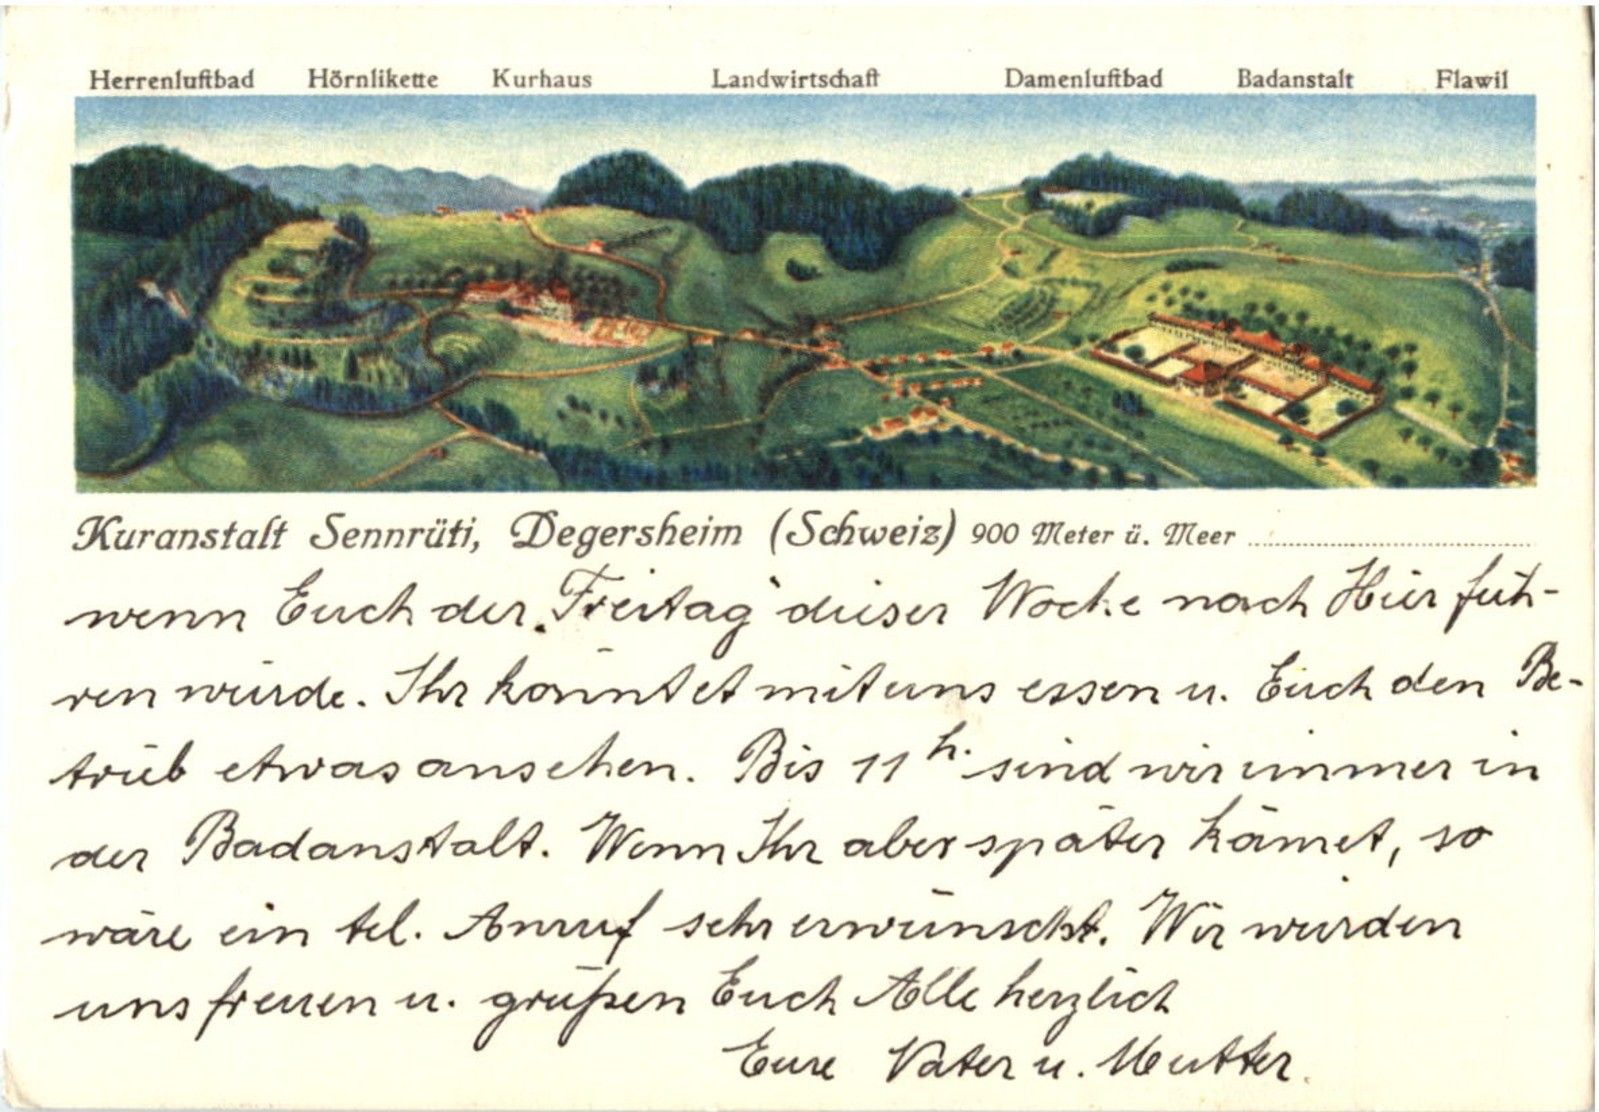 Herrenluftbad Hörnlikette Kurhaus Landwirtschaft Damenluftbad Badanstalt Flawil
Kuranstalt Sennrüti, Degersheim (Schweiz) 900 Meter ü. Meer
wenn Euch der „Freitag" dieser Woche nach Hier füh-
ren würde. Ihr könntet mit uns essen u. Euch den Be-
trieb etwas ansehen. Bis 11 h. sind wir immer in
der Badanstalt. Wenn Ihr aber später kämet, so
wäre ein tel. Anruf sehr erwünscht. Wir würden
uns freuen u. grüßen Euch Alle herzlich
Eure Vater u. Mutter.